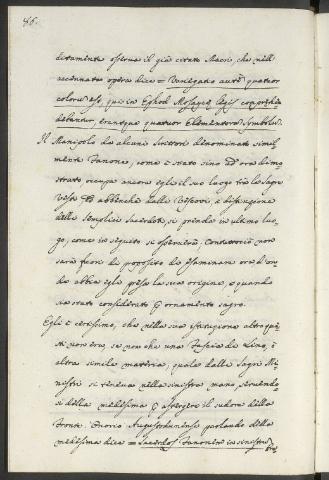 86.
ditamente osserva il già citato Macri, che nell'
accennata opera dice = Variegatio autẽ quatuor
colorũ est, qui in Ephod Mosaycę legis conspicie
debantur, erantque quatuor Elementorũ Symbolũ.
Il Manipolo da alcuni Scrittori denominato simil
mente Fanone, come è stato sino ad ora dimo
strato, occupa ancora egli il suo luogo fra le sagre
Vesti, ed abbenche dalli Vescovi, a distinzione
delli semplici Sacerdoti, si prenda in ultimo luo
go, come in seguito si osserverà, contuttociò non
sarà fuori di proposito di esaminare ora d'on
de abbia egli preso la sua origine, e quando
sia stato considerato p ornamento sagro.
Egli è certissimo, che nella sua istituzione altro que
sti non era, se non che una Fascia di Lino, ò
altra simile materia, quale dalli Sagri Mi
nistri si teneva nella sinistra mano, servendo
si della medesima p astergere il sudore della
Fronte. Onorio Augustodunense parlando della
medesima dice = Sacerdos Fanonem in sinistro